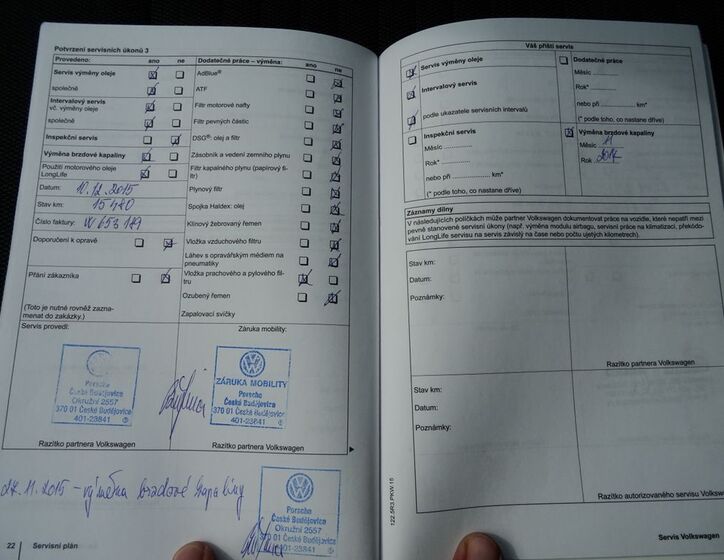 Potvrzení servisních úkonů 3
Provedeno: ano ne
Servis výměny oleje
společně
Intervalový servis
vč. výměny oleje
společně
Inspekční servis
Výměna brzdové kapaliny
Použití motorového oleje
LongLife
Datum: 10.12.2015
Stav km: 15480
Číslo faktury:
Doporučení k opravě
Přání zákazníka
(Toto je nutné rovněž zazna-
menat do zakázky.)
Dodatečné práce – výměna: ano ne
AdBlue®
ATF
Filtr motorové nafty
Filtr pevných částic
DSG®: olej a filtr
Zásobník a vedení zemního plynu
Filtr kapalného plynu (papírový fi-
ltr)
Plynový filtr
Spojka Haldex: olej
Klínový žebrovaný řemen
Vložka vzduchového filtru
Láhev s opravářským médiem na
pneumatiky
Vložka prachového a pylového fil-
tru
Ozubený řemen
Zapalovací svíčky
Servis provedl:
Porsche
České Budějovice
Okružní 2557
370 01 České Budějovice
401-23841
Razítko partnera Volkswagen
Záruka mobility:
ZÁRUKA MOBILITY
Porsche
České Budějovice
Okružní 2557
370 01 České Budějovice
401-23841
Razítko partnera Volkswagen
27.11.2015 - výměna brzdové kapaliny
Porsche
České Budějovice
Okružní 2557
370 01 České Budějovice
401-23841
22 Servisní plán
Váš příští servis
Servis výměny oleje
Intervalový servis
podle ukazatele servisních intervalů
Inspekční servis
Měsíc
Rok*
nebo při km*
(* podle toho, co nastane dříve)
Dodatečné práce
Měsíc
Rok*
nebo při km*
(* podle toho, co nastane dříve)
Výměna brzdové kapaliny
Měsíc 11
Rok 2017
Záznamy dílny
V následujících políčkách může partner Volkswagen dokumentovat práce na vozidle, které nepatří mezi
pevně stanovené servisní úkony (např. výměna modulu airbagu, servisní práce na klimatizaci, překódo-
vání LongLife servisu na servis závislý na čase nebo počtu ujetých kilometrech).
Stav km:
Datum:
Poznámky:
Razítko partnera Volkswagen
Stav km:
Datum:
Poznámky:
Razítko autorizovaného servisu Volksw
122.5R3.PKW.15
Servis Volkswagen